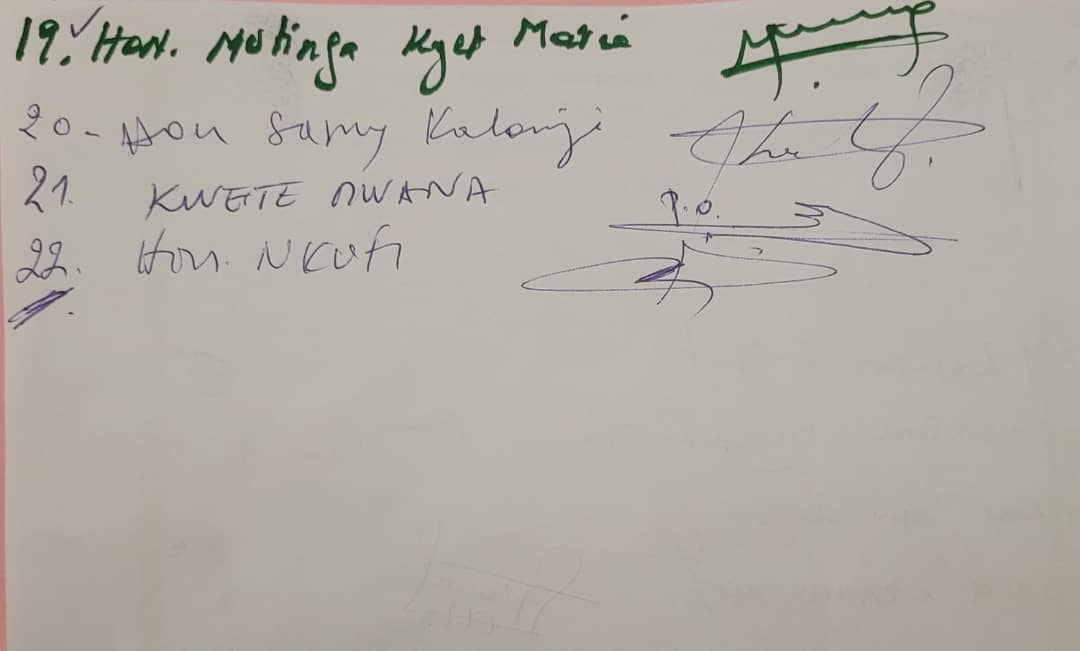 19. Hon. Mutinga Kyet Maria
20- Hon Samy Kalonji
21. KWETE MWANA P.O.
22. Hon. NKUFI